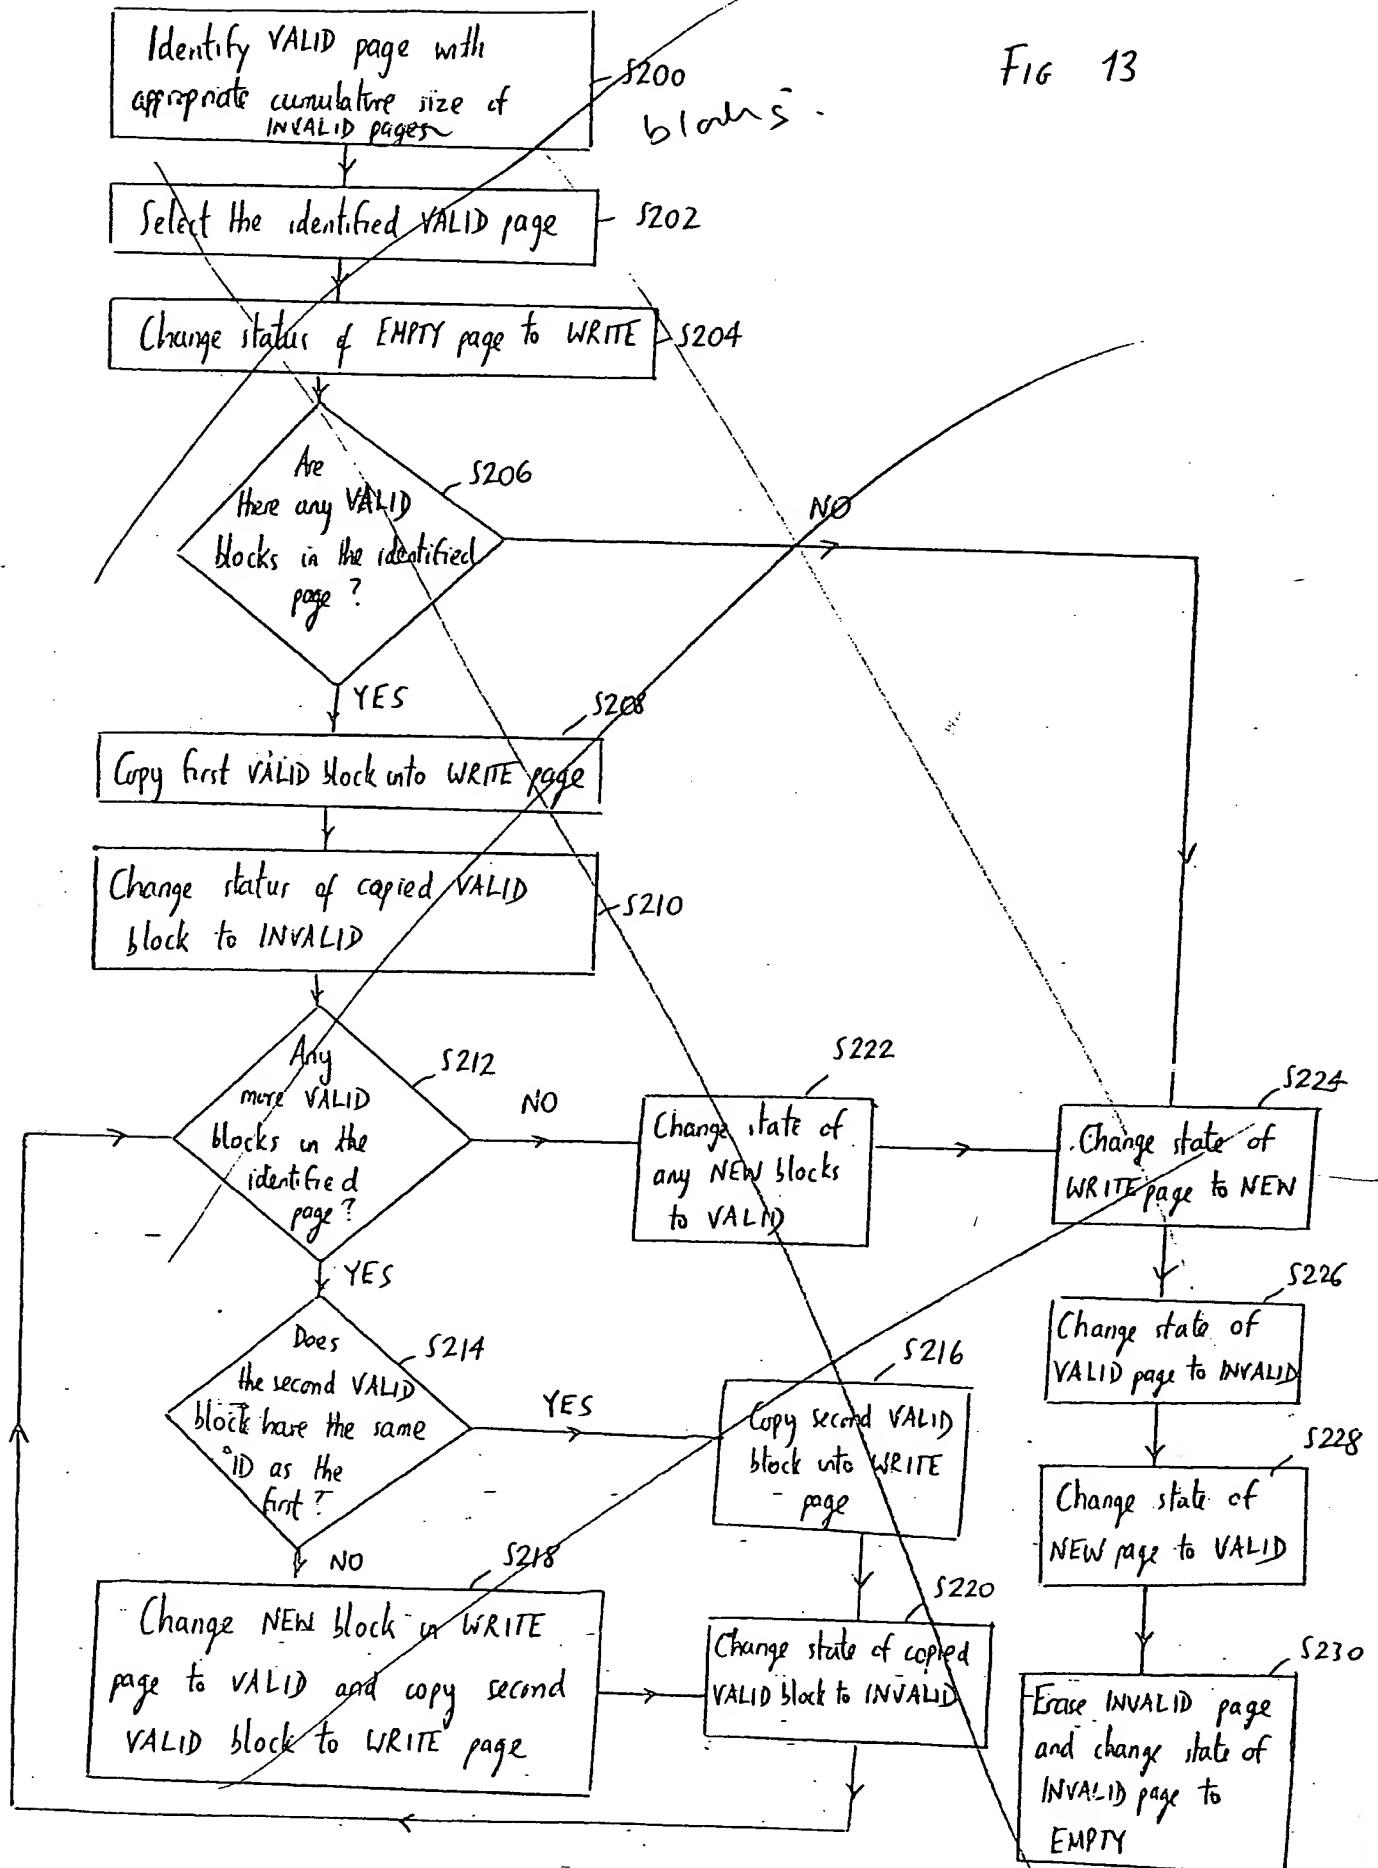 FIG 13
Identify VALID page with
appropriate cumulative size of
INVALID pages
S200
blocks.
Select the identified VALID page
S202
Change status of EMPTY page to WRITE
S204
Are
there any VALID
blocks in the identified
page?
S206
NO
YES
S208
Copy first VALID block into WRITE page
Change status of copied VALID
block to INVALID
S210
Any
more VALID
blocks in the
identified
page?
S212
NO
S222
Change state of
any NEW blocks
to VALID
S224
Change state of
WRITE page to NEW
YES
Does
the second VALID
block have the same
ID as the
first?
S214
YES
S216
Copy second VALID
block into WRITE
page
S226
Change state of
VALID page to INVALID
S228
Change state of
NEW page to VALID
NO
S218
Change NEW block in WRITE
page to VALID and copy second
VALID block to WRITE page
S220
Change state of copied
VALID block to INVALID
S230
Erase INVALID page
and change state of
INVALID page to
EMPTY